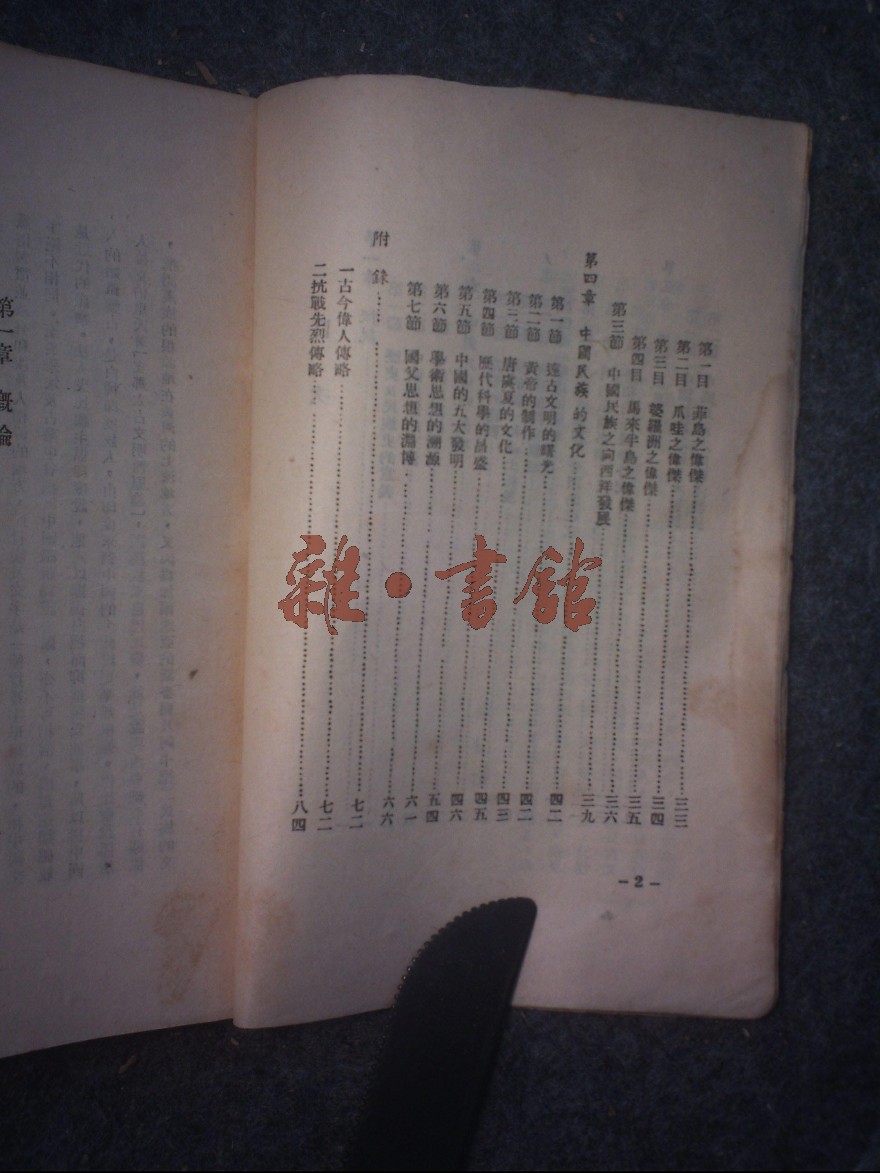 第一目 菲島之偉傑……三三
第二目 爪哇之偉傑……三四
第三目 婆羅洲之偉傑……三五
第四目 馬來半島之偉傑……三六
第三節 中國民族之向西洋發展……三九
第四章 中國民族的文化……四二
第一節 遠古文明的曙光……四二
第二節 黃帝的制作……四三
第三節 唐虞夏的文化……四五
第四節 歷代科學的昌盛……四六
第五節 中國的五大發明……五四
第六節 學術思想的溯源……六一
第七節 國父思想的淵博……六六
附錄……七二
一古今偉人傳略……七二
二抗戰先烈傳略……八四
-2-
第一章 概論
雜·書館